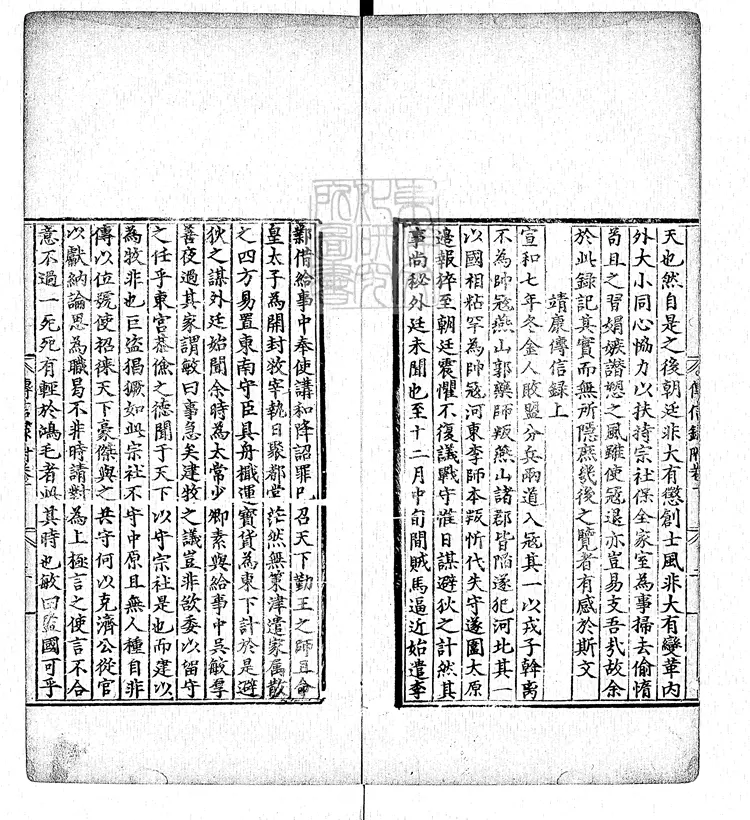 天也然自是之後朝廷非大有懲創士風非大有變革内
外大小同心協力以扶持宗社保全家室為事掃去偷惰
苟且之習媢嫉譖愬之風雖使寇退亦豈易支吾㢤故余
於此録記其實而無所隱庶幾後之覽者有感於斯文
靖康傳信録上
宣和七年冬金人敗盟分兵兩道入寇其一以戎子斡离
不為帥寇燕山郭藥師叛燕山諸郡皆陷遂犯河北其一
以國相粘罕為帥寇河東李師本叛忻代失守遂圍太原
邉報猝至朝廷震懼不復議戰守惟日謀避狄之計然其
事尚秘外廷未聞也至十二月中旬間賊馬逼近始遣李
鄴借給事中奉使講和降詔罪已召天下勤王之師且命
皇太子為開封牧宰執日聚都堂茫然無策津遣家屬散
之四方易置東南守臣具舟檝運寶貨為東下計於是避
狄之謀外廷始聞余時為太常少卿素與給事中吳敏厚
善夜過其家謂敏曰事急矣建牧之議豈非欲委以留守
之任乎東宮恭儉之德聞于天下以守宗社是也而建以
為牧非也巨盜猖獗如此宗社不守中原且無人種自非
傳以位號使招徠天下豪傑與之共守何以克濟公從官
以獻納論思為職曷不非時請對為上極言之使言不合
意不過一死死有輕於鴻毛者此其時也敏曰監國可乎